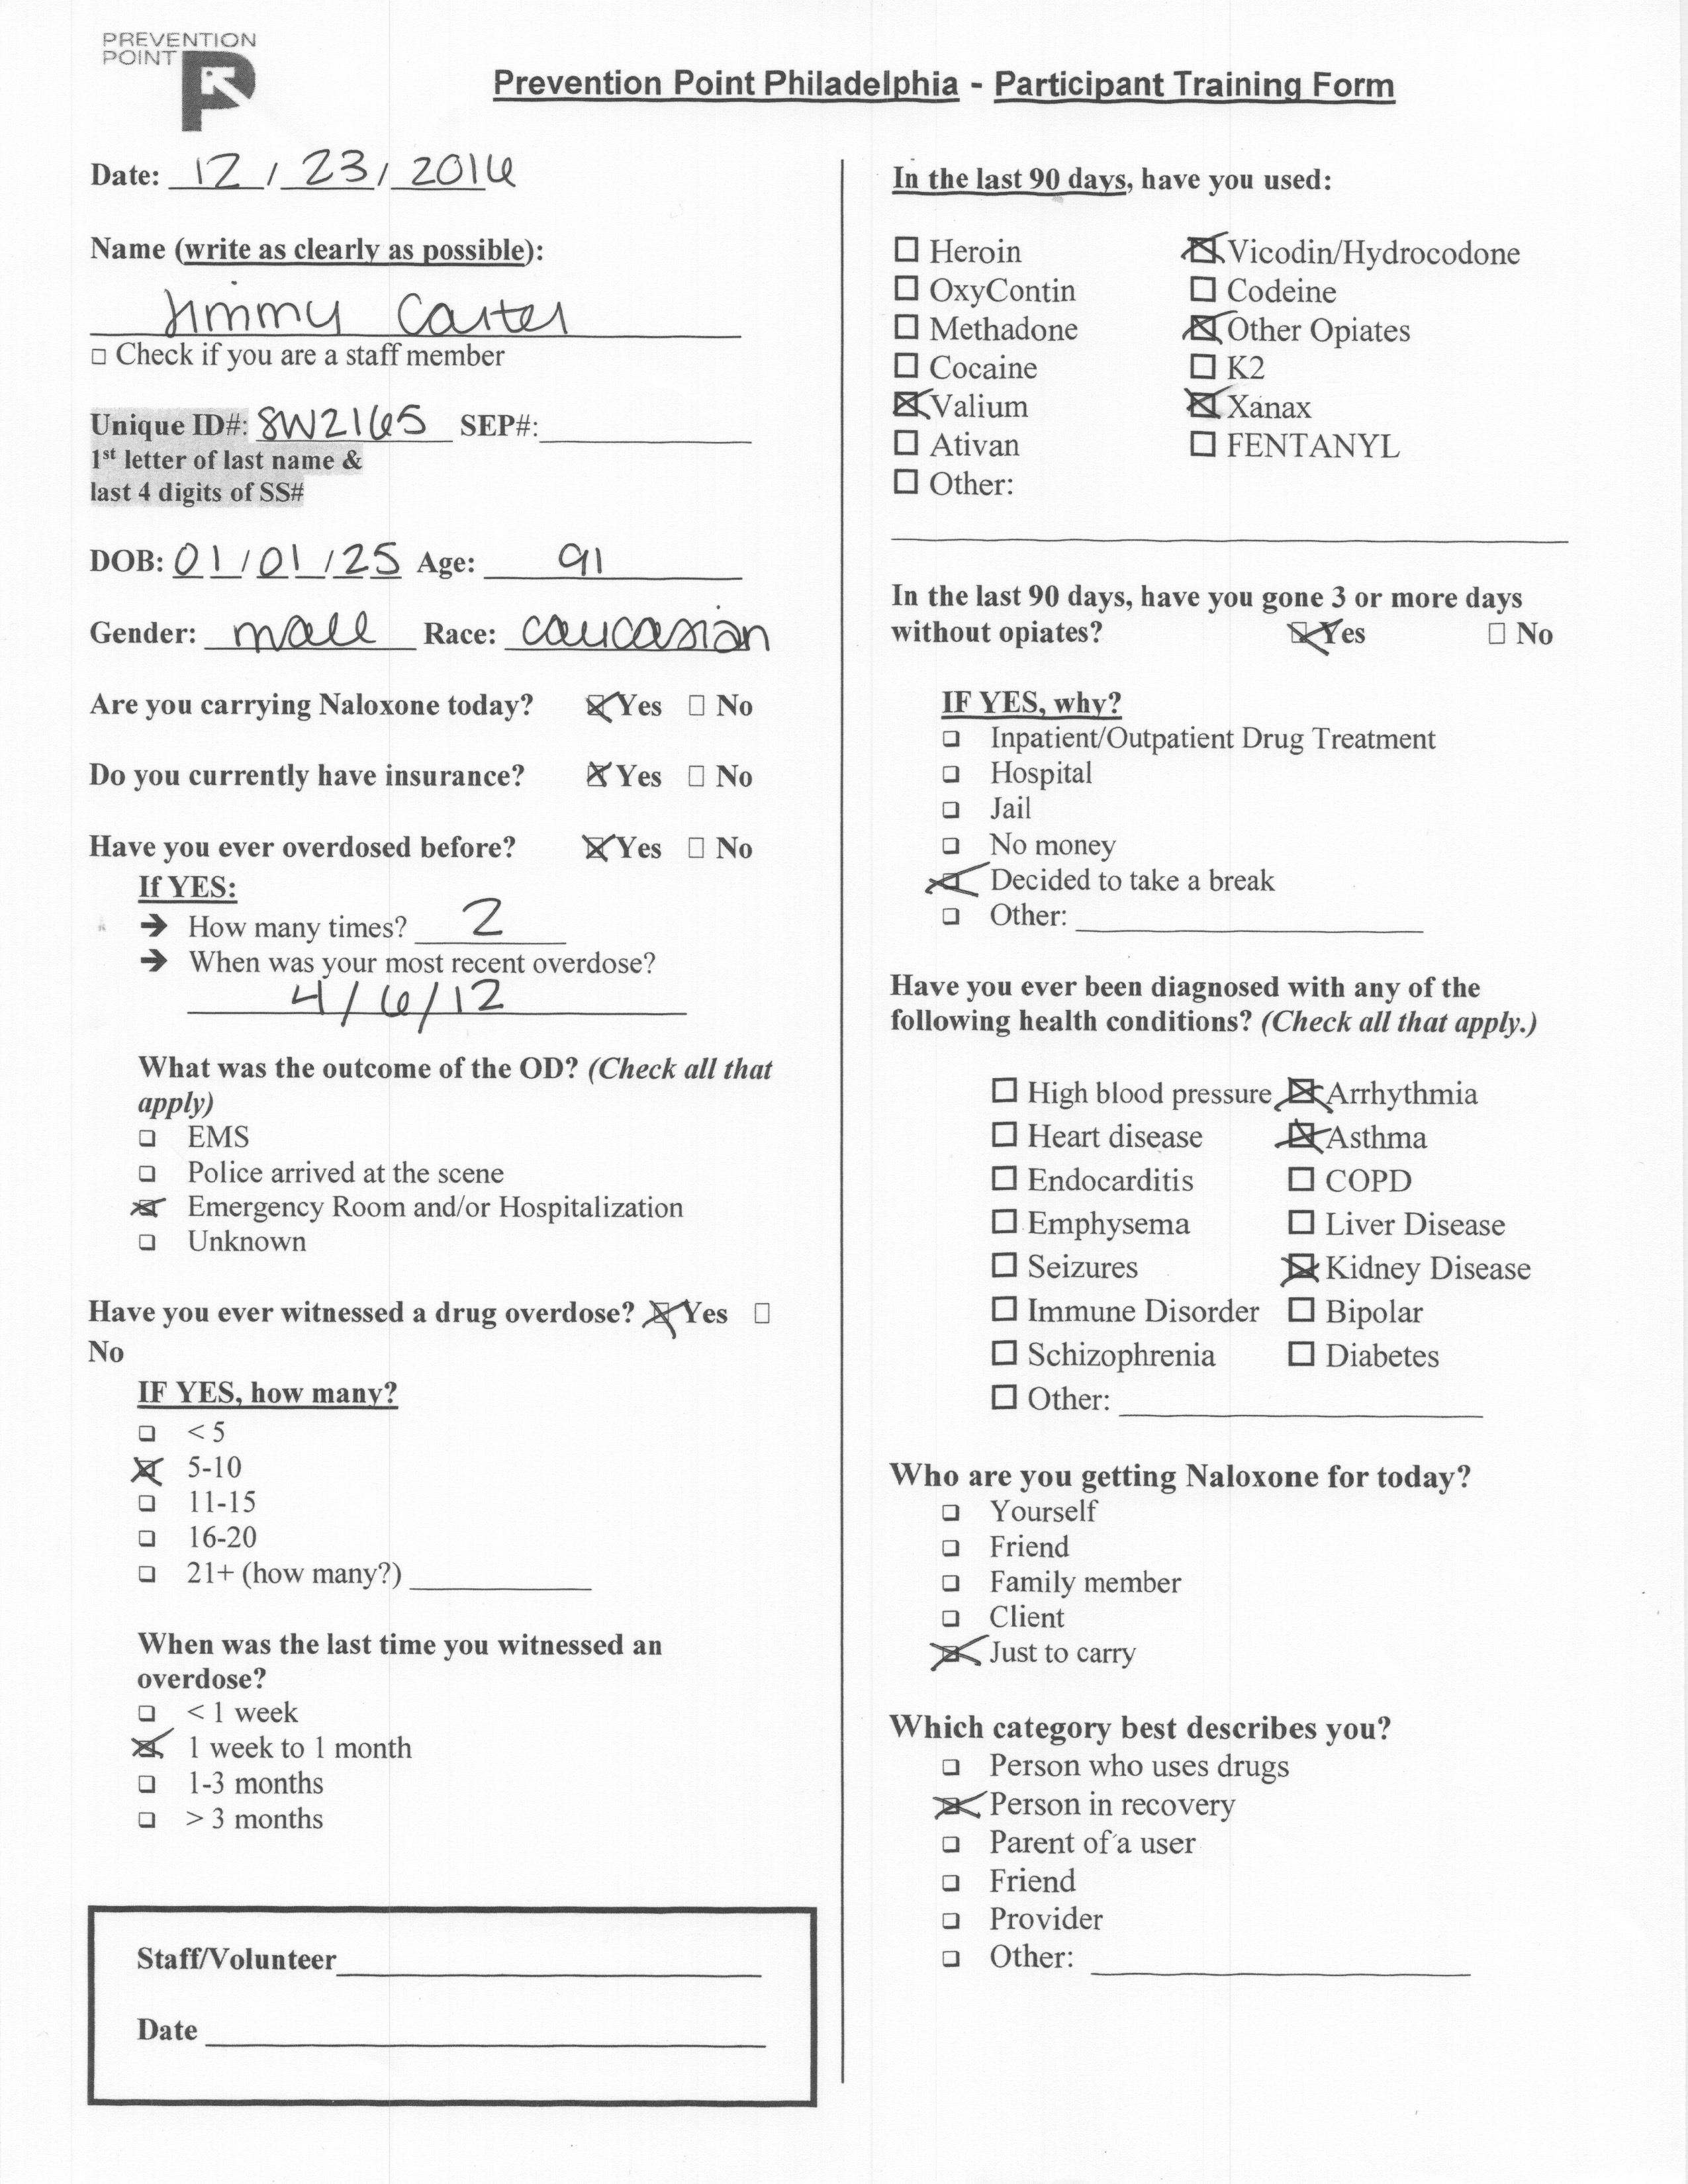 PREVENTION
POINT
Prevention Point Philadelphia - Participant Training Form
Date: 12 / 23 / 2016
Name (write as clearly as possible):
Jimmy Carter
☐ Check if you are a staff member
Unique ID#: 8W2165 SEP#:
1st letter of last name &
last 4 digits of SS#
DOB: 01/01/25 Age: 91
Gender: male Race: caucasian
Are you carrying Naloxone today? ☒ Yes ☐ No
Do you currently have insurance? ☒ Yes ☐ No
Have you ever overdosed before? ☒ Yes ☐ No
If YES:
➔ How many times? 2
➔ When was your most recent overdose?
4/6/12
What was the outcome of the OD? (Check all that
apply)
☐ EMS
☐ Police arrived at the scene
☒ Emergency Room and/or Hospitalization
☐ Unknown
Have you ever witnessed a drug overdose? ☒ Yes ☐
No
IF YES, how many?
☐ < 5
☒ 5-10
☐ 11-15
☐ 16-20
☐ 21+ (how many?)
When was the last time you witnessed an
overdose?
☐ < 1 week
☒ 1 week to 1 month
☐ 1-3 months
☐ > 3 months
Staff/Volunteer
Date
In the last 90 days, have you used:
☐ Heroin ☒ Vicodin/Hydrocodone
☐ OxyContin ☐ Codeine
☐ Methadone ☒ Other Opiates
☐ Cocaine ☐ K2
☒ Valium ☒ Xanax
☐ Ativan ☐ FENTANYL
☐ Other:
In the last 90 days, have you gone 3 or more days
without opiates? ☒ Yes ☐ No
IF YES, why?
☐ Inpatient/Outpatient Drug Treatment
☐ Hospital
☐ Jail
☐ No money
☒ Decided to take a break
☐ Other:
Have you ever been diagnosed with any of the
following health conditions? (Check all that apply.)
☐ High blood pressure ☒ Arrhythmia
☐ Heart disease ☒ Asthma
☐ Endocarditis ☐ COPD
☐ Emphysema ☐ Liver Disease
☐ Seizures ☒ Kidney Disease
☐ Immune Disorder ☐ Bipolar
☐ Schizophrenia ☐ Diabetes
☐ Other:
Who are you getting Naloxone for today?
☐ Yourself
☐ Friend
☐ Family member
☐ Client
☒ Just to carry
Which category best describes you?
☐ Person who uses drugs
☒ Person in recovery
☐ Parent of a user
☐ Friend
☐ Provider
☐ Other: